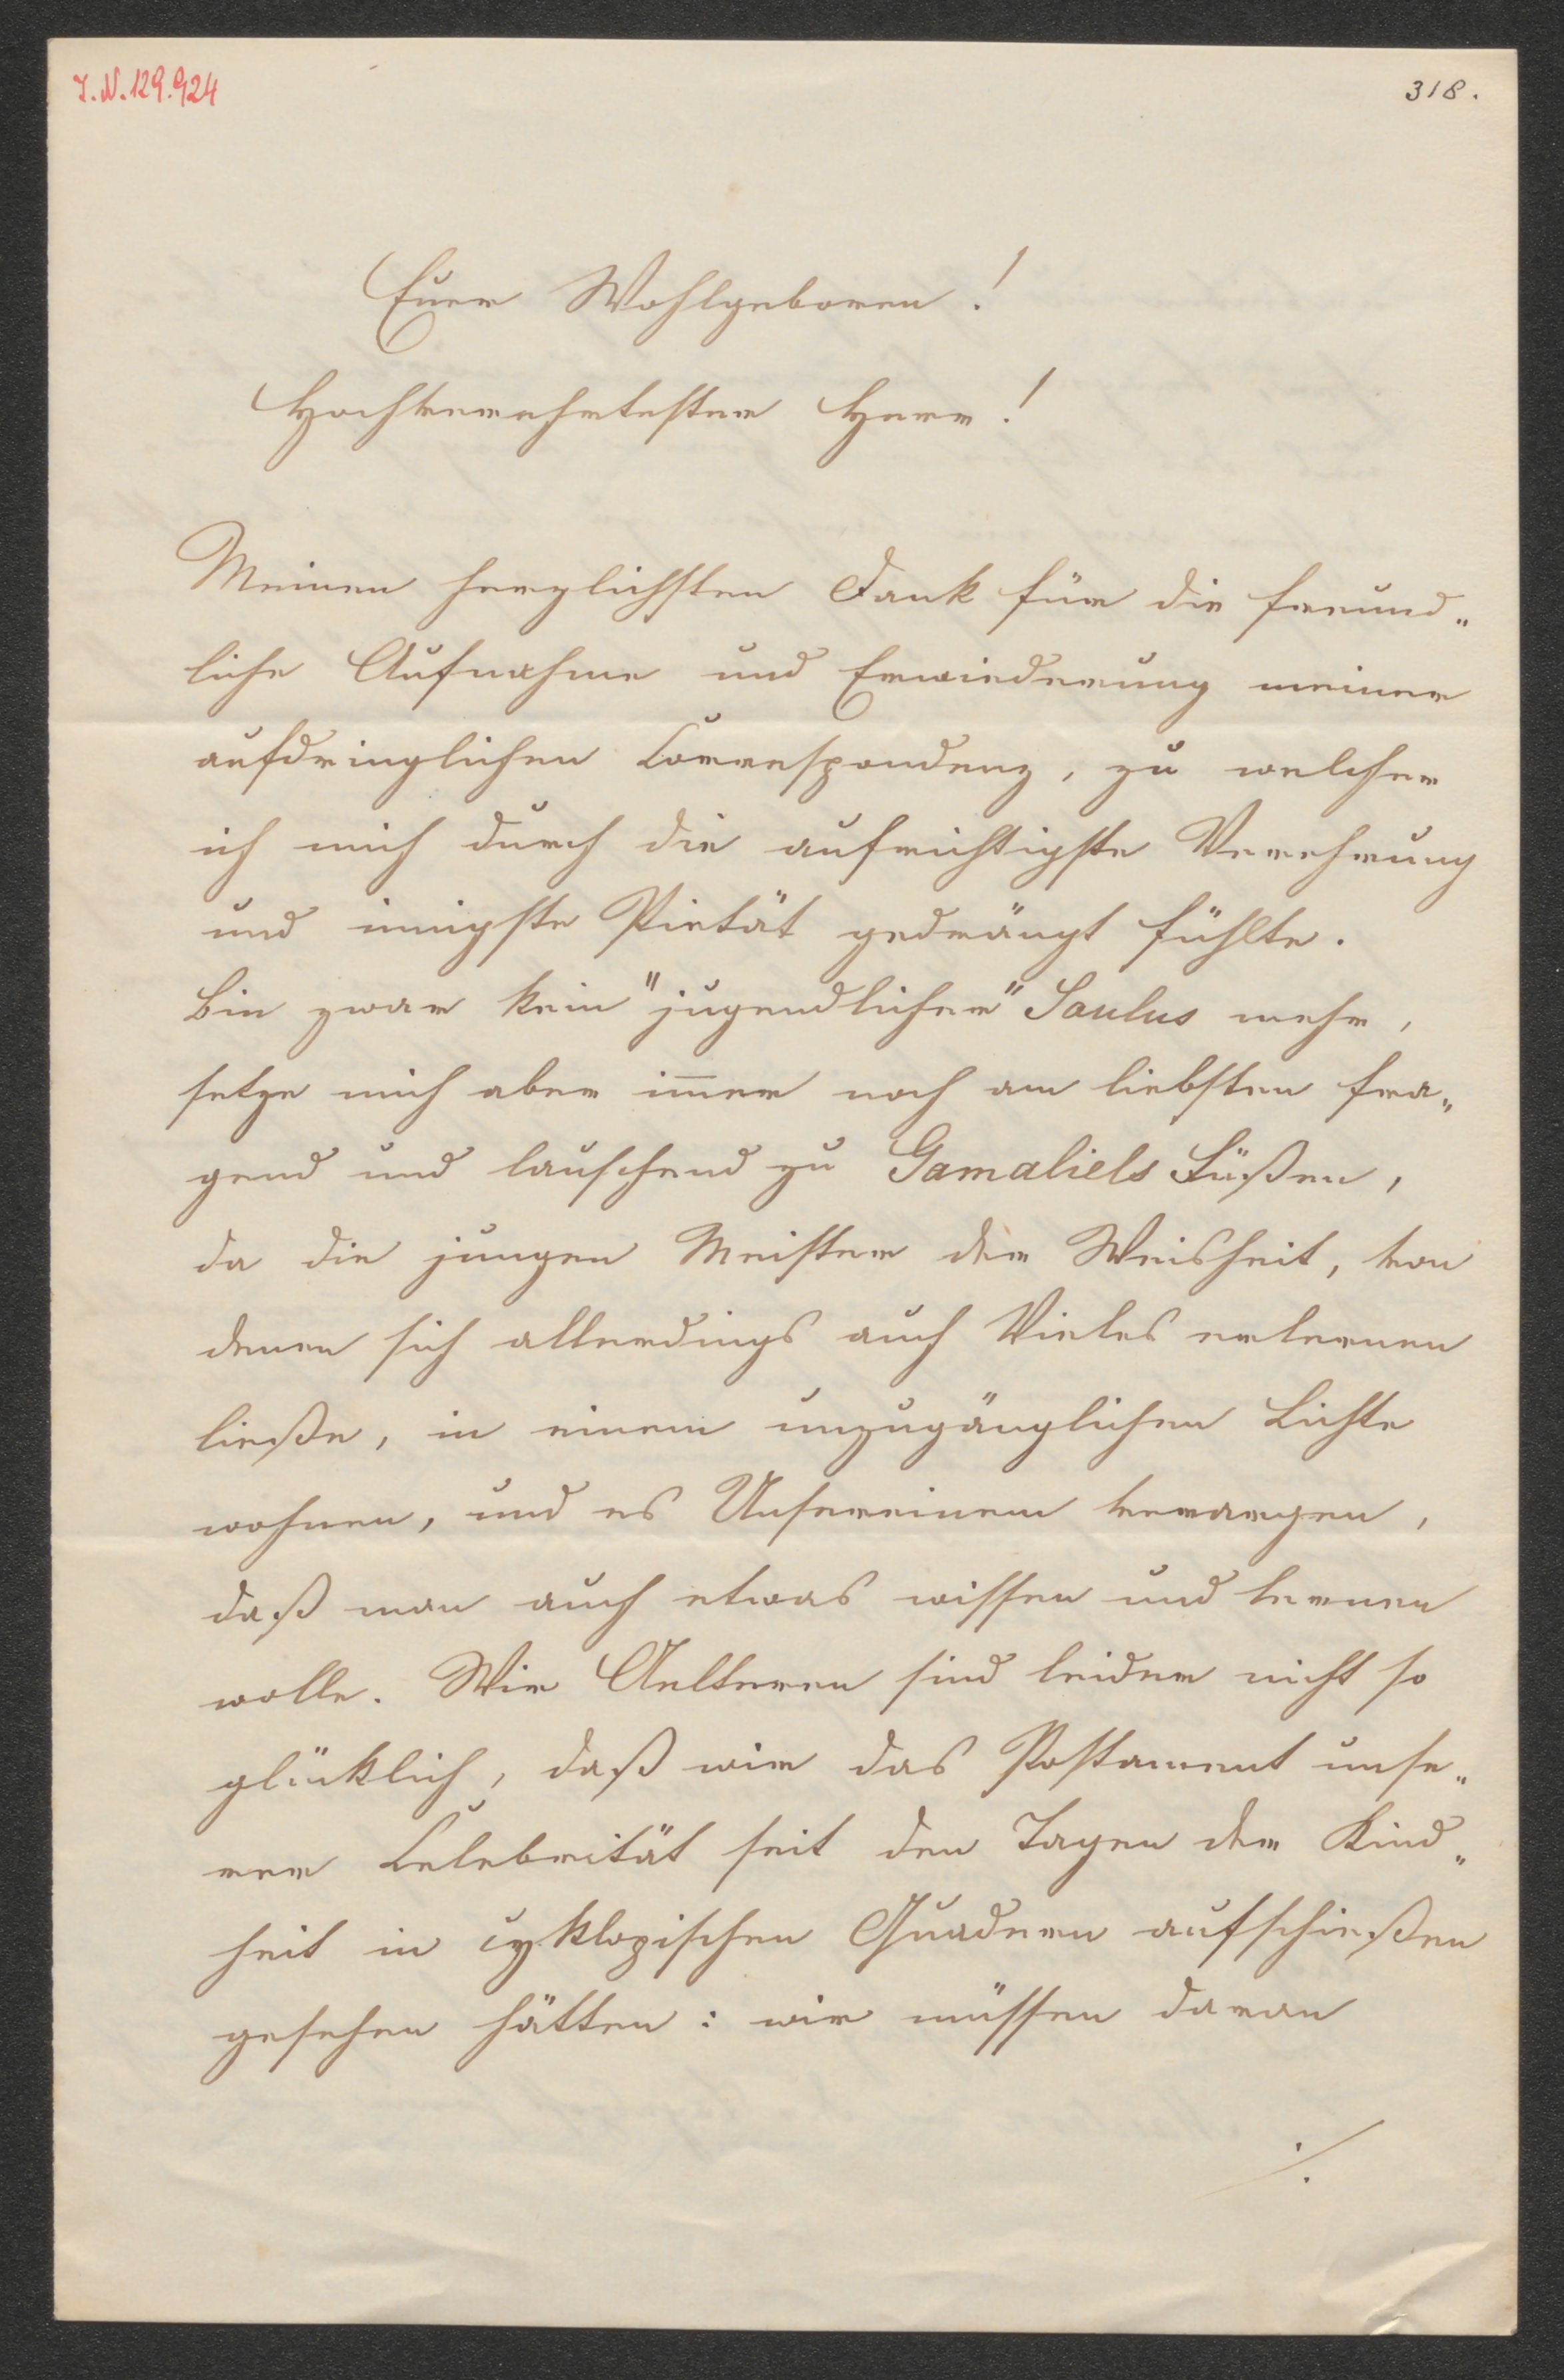 I.N.129.924
318.
Euer Wohlgeboren!
Hochverehrtester Herr!
Meinen herzlichsten Dank für die freund„
liche Aufnahme und Erwiederung meiner
aufdringlichen Correspondenz, zu welcher
ich mich durch die aufrichtigste Verehrung
und innigste Pietät gedrängt fühlte.
Bin zwar kein "jugendlicher" Saulus mehr,
setze mich aber im̅er noch am liebsten fra„
gend und lauschend zu Gamaliels Füßen,
da die jungen Meister der Weisheit, von
denen sich allerdings auch Vieles erlernen
ließe, in einem unzugänglichen Lichte
wohnen, und es Unsereinem verargen,
daß man auch etwas wissen und lernen
wolle. Wir Aelteren sind leider nicht so
glücklich, daß wir das Postament unse„
rer Celebrität seit den Tagen der Kind„
heit in cyklopischen Quadern aufschießen
gesehen hätten: wir müssen daran
./.